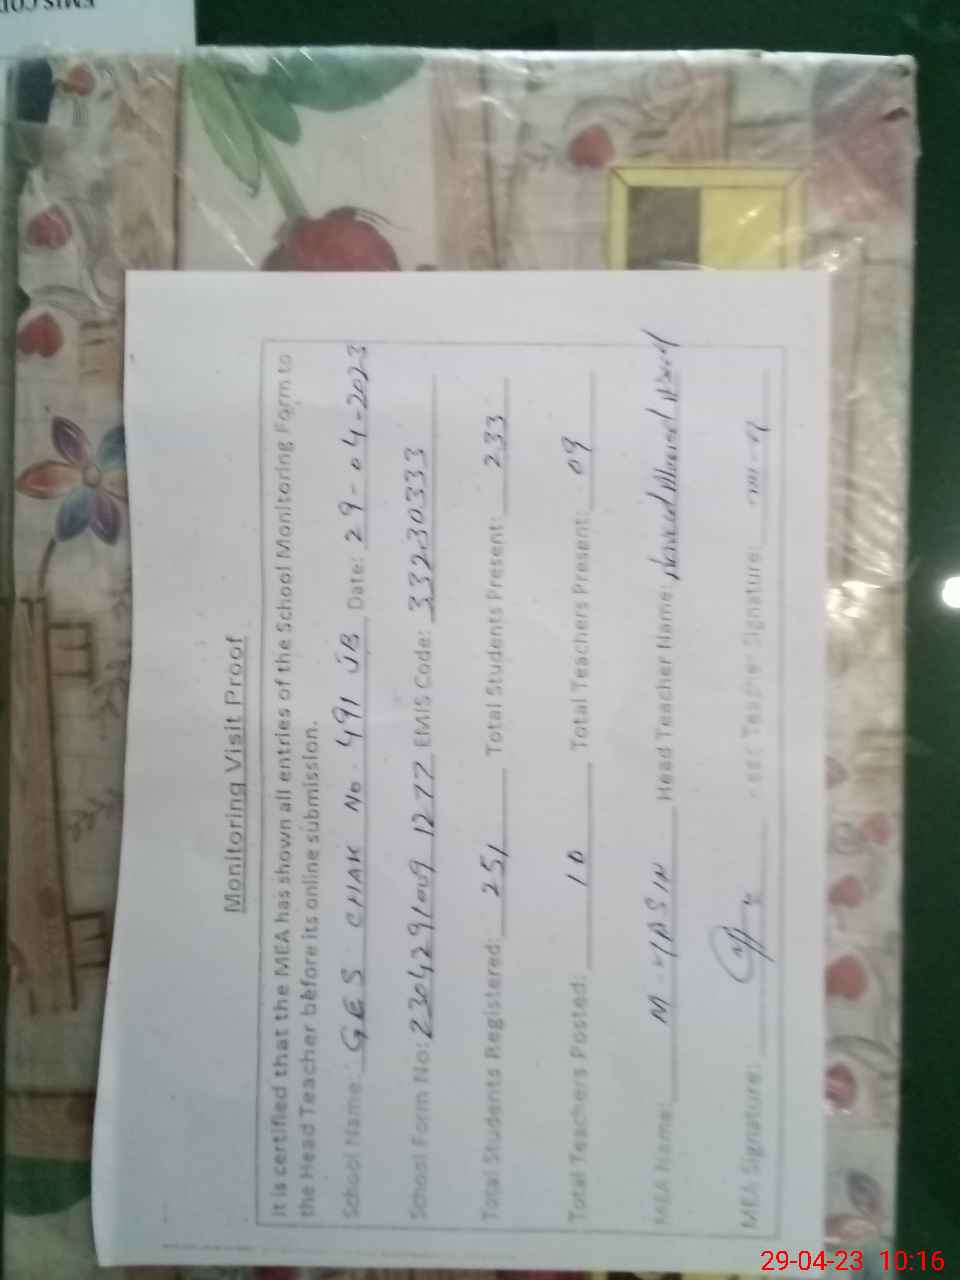 EMIS COD
Monitoring Visit Proof
It is certified that the MEA has shown all entries of the School Monitoring Form to
the Head Teacher before its online submission.
School Name: GES CHAK No. 491 JB Date: 29-04-2023
School Form No: 2304291009 1277 EMIS Code: 33230333
Total Students Registered: 251 Total Students Present: 233
Total Teachers Posted: 10 Total Teachers Present: 09
MEA Name: M. YASIN Head Teacher Name:
MEA Signature: Teacher Signature:
29-04-23 10:16